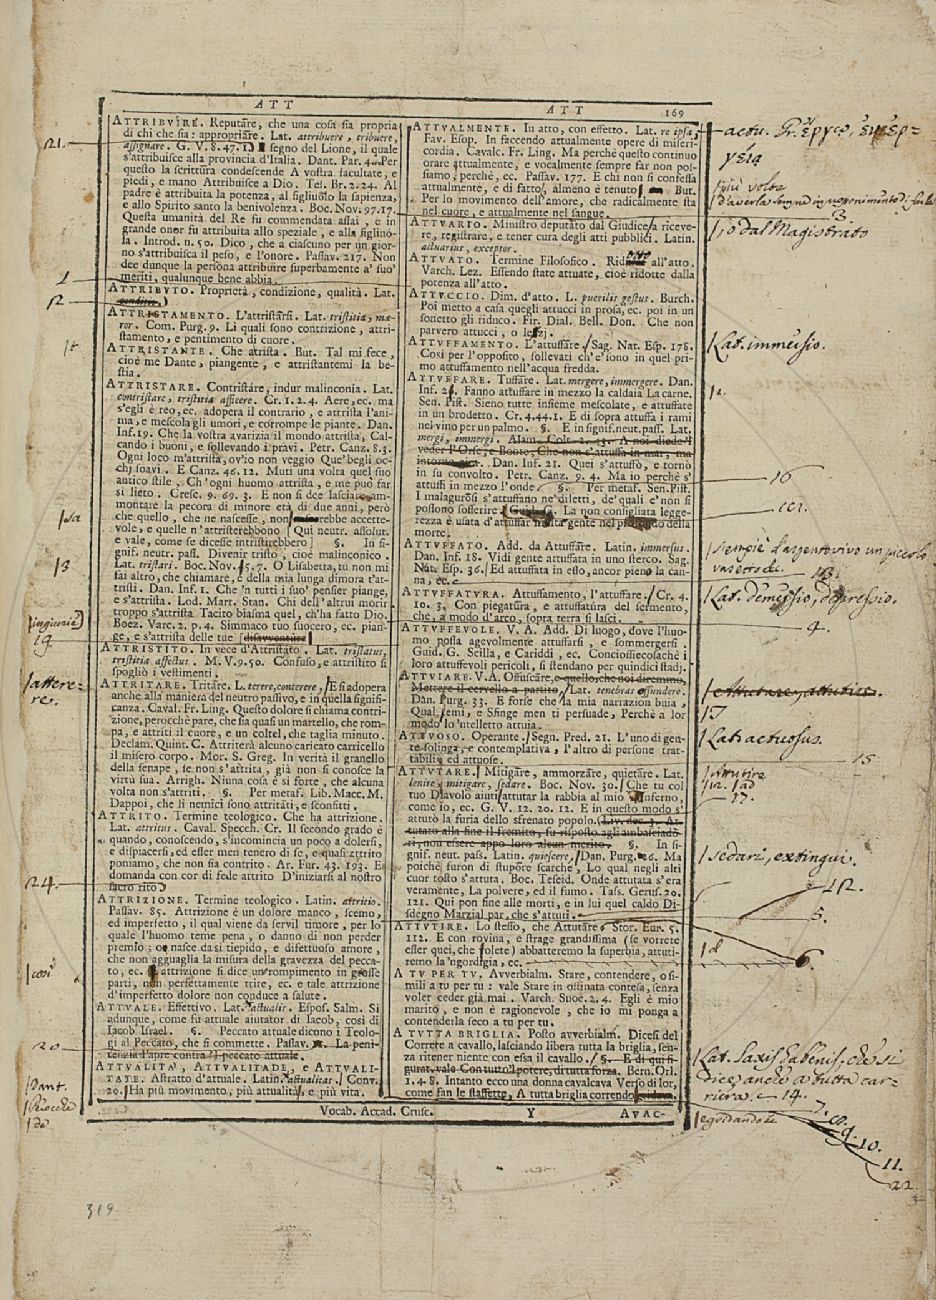 ATT
ATT
169
ATTRIBVIRE. Reputare, che una cosa sia propria
di chi che sia: appropriare. Lat. attribuere, tribuere,
assignare. G. V. 8. 47. segno del Lione, il quale
s'attribuisce alla provincia d'Italia. Dant. Par. 4. Per
questo la scrittura condescende A vostra facultate, e
piedi, e mano Attribuisce a Dio. Tes. Br. 2. 24. Al
padre è attribuita la potenza, al figliuolo la sapienza,
e allo Spirito santo la benivolenza. Boc. Nov. 97. 17.
Questa umanità del Re fu commendata assai, e in
grande onor fu attribuita allo speziale, e alla figliuo-
la. Introd. n. 50. Dico, che a ciascuno per un gior-
no s'attribuisca il peso, e l'onore. Passav. 217. Non
dee dunque la persona attribuire superbamente a' suo'
meriti, qualunque bene abbia.
ATTRIBVTO. Proprietà, condizione, qualità. Lat.
ATTRISTAMENTO. L'attristarsi. Lat. tristitia, mæ-
ror. Com. Purg. 9. Li quali sono contrizione, attri-
stamento, e pentimento di cuore.
ATTRISTANTE. Che atrista. But. Tal mi fece,
cioè me Dante, piangente, e attristantemi la be-
stia.
ATTRISTARE. Contristare, indur malinconia. Lat.
contristare, tristitia afficere. Cr. 1. 2. 4. Aere, ec. ma
s'egli è reo, ec. adopera il contrario, e attrista l'ani-
ma, e mescola gli umori, e corrompe le piante. Dan.
Inf. 19. Che la vostra avarizia il mondo attrista, Cal-
cando i buoni, e sollevando i pravi. Petr. Canz. 8. 3.
Ogni loco m'attrista, ov'io non veggio Que' begli oc-
chj soavi. E Canz. 46. 12. Muti una volta quel suo
antico stile, Ch'ogni huomo attrista, e me può far
sì lieto. Cresc. 9. 69. 3. E non si dee lasciare am-
montare la pecora di minore età di due anni, però
che quello, che ne nascesse, non rebbe accette-
vole, e quelle n'attristerebbono [Qui neutr. assolut.
e vale, come se dicesse intristirebbero] §. In si-
gnif. neutr. pass. Divenir tristo, cioè malinconico.
Lat. tristari. Boc. Nov. 35. 7. O Lisabetta, tu non mi
fai altro, che chiamare, e della mia lunga dimora t'at-
tristi. Dan. Inf. 1. Che 'n tutti i suo' pensier piange,
e s'attrista. Lod. Mart. Stan. Chi dell'altrui morir
troppo s'attrista. Tacito biasma quel, ch'ha fatto Dio.
Boez. Varc. 2. p. 4. Simmaco tuo suocero, ec. pian-
ge, e s'attrista delle tue disavventure
ATTRISTITO. In vece d'Attristato. Lat. tristatus,
tristitia affectus. M. V. 9. 50. Confuso, e attristito si
spogliò i vestimenti.
ATTRITARE. Tritare. L. terere, conterere, E si adopera
anche alla maniera del neutro passivo, e in quella signifi-
canza. Caval. Fr. Ling. Questo dolore si chiama contri-
zione, perocchè pare, che sia quasi un martello, che rom-
pa, e attriti il cuore, e un coltel, che taglia minuto.
Declam. Quint. C. Attriterà alcuno caricato carricello
il misero corpo. Mor. S. Greg. In verità il granello
della senape, se non s'attrita, già non si conosce la
virtù sua. Arrigh. Niuna cosa è sì forte, che alcuna
volta non s'attriti. §. Per metaf. Lib. Macc. M.
Dappoi, che li nemici sono attritati, e sconfitti.
ATTRITO. Termine teologico. Che ha attrizione.
Lat. attritus. Caval. Specch. Cr. Il secondo grado è
quando, conoscendo, s'incomincia un poco a dolersi,
e dispiacersi, ed esser men tenero di se, e quasi attrito
poniamo, che non sia contrito. Ar. Fur. 43. 193. E
domanda con cor di fede attrito D'iniziarsi al nostro
sacro rito
ATTRIZIONE. Termine teologico. Latin. attritio.
Passav. 85. Attrizione è un dolore manco, scemo,
ed imperfetto, il qual viene da servil timore, per lo
quale l'huomo teme pena, o danno di non perder
premio: o nasce da sì tiepido, e difettuoso amore,
che non agguaglia la misura della gravezza del pecca-
to, ec. attrizione si dice un rompimento in grosse
parti, non perfettamente trite, ec. e tale attrizione
d'imperfetto dolore non conduce a salute.
ATTVALE. Effettivo. Lat. actualis. Espos. Salm. Si
adunque, come fu attuale aiutator di Iacob, così di
Iacob Israel. §. Peccato attuale dicono i Teolo-
gi al Peccato, che si commette. Passav. La peni-
tenzia l'apre contra 'l peccato attuale.
ATTVALITA', ATTVALITADE, E ATTVALI-
TATE. Astratto d'attuale. Latin. actualitas. Conv.
20. Ha più movimento, più attualità, e più vita.
ATTVALMENTE. In atto, con effetto. Lat. re ipsa,
Fav. Esop. In faccendo attualmente opere di miseri-
cordia. Cavalc. Fr. Ling. Ma perchè questo continuo
orare attualmente, e vocalmente sempre far non pos-
siamo, perchè, ec. Passav. 177. E chi non si confessa
attualmente, e di fatto, almeno è tenuto But.
Per lo movimento dell'amore, che radicalmente sta
nel cuore, e attualmente nel sangue.
ATTVARIO. Ministro deputato dal Giudice a riceve-
re, registrare, e tener cura degli atti pubblici. Latin.
actuarius, exceptor.
ATTVATO. Termine Filosofico. all'atto.
Varch. Lez. Essendo state attuate, cioè ridotte dalla
potenza all'atto.
ATTVCCIO. Dim. d'atto. L. puerilis gestus. Burch.
Poi metto a casa quegli attucci in prosa, ec. poi in un
sonetto gli riduco. Fir. Dial. Bell. Don. Che non
parvero attucci, o lezzj.
ATTVFFAMENTO. L'attuffare. Sag. Nat. Esp. 178.
Così per l'opposito, sollevati ch'e' sono in quel pri-
mo attuffamento nell'acqua fredda.
ATTVFFARE. Tuffare. Lat. mergere, immergere. Dan.
Inf. 21. Fanno attuffare in mezzo la caldaia La carne.
Sen. Pist. Sieno tutte insieme mescolate, e attuffate
in un brodetto. Cr. 4. 44. 1. E di sopra attuffa i rami
nel vino per un palmo. §. E in signif. neut. pass. Lat.
mergi, immergi. Alam. Colt. 2. 43. A noi diede 'l
veder l'Orse, e Boote, Che non s'attuffa in mar, ma
intorno gira. Dan. Inf. 21. Quei s'attuffò, e tornò
in su convolto. Petr. Canz. 9. 4. Ma io perchè s'
attuffi in mezzo l'onde §. Per metaf. Sen. Pist.
I malagurosi s'attuffano ne' diletti, de' quali e' non si
possono sofferire. La non consigliata legge-
rezza è usata d'attuffar molta gente nel della
morte.
ATTVFFATO. Add. da Attuffare. Latin. immersus.
Dan. Inf. 18. Vidi gente attuffata in uno sterco. Sag.
Nat. Esp. 36. Ed attuffata in esso, ancor pieno la can-
na, ec.
ATTVFFATVRA. Attuffamento, l'attuffare. Cr. 4.
10. 3. Con piegatura, e attuffatura del sermento,
che, a modo d'arco, sopra terra si lasci.
ATTVFFEVOLE. V. A. Add. Di luogo, dove l'huo-
mo possa agevolmente attuffarsi, e sommergersi.
Guid. G. Scilla, e Cariddi, ec. Conciossiecosachè i
loro attuffevoli pericoli, si stendano per quindici stadj.
ATTVIARE. V. A. Offuscare, e quello, che noi diremmo,
Mettere il cervello a partito, Lat. tenebras offundere.
Dan. Purg. 33. E forse che la mia narrazion buia,
Qual Temi, e Sfinge men ti persuade, Perchè a lor
modo lo 'ntelletto attuia.
ATTVOSO. Operante. Segn. Pred. 21. L'uno di gen-
te solinga, e contemplativa, l'altro di persone trat-
tabili, ed attuose.
ATTVTARE. Mitigare, ammorzare, quietare. Lat.
lenire, mitigare, sedare. Boc. Nov. 30. Che tu col
tuo Diavolo aiuti attutar la rabbia al mio Ninferno,
come io, ec. G. V. 12. 20. 12. E in questo modo s'
attutò la furia dello sfrenato popolo. Liv. dec. 3. At-
tutato alla fine il fremito, fu risposto agli ambasciado-
ri, non essere appo loro alcun merito. §. In si-
gnif. neut. pass. Latin. quiescere, Dan. Purg. 26. Ma
poichè furon di stupore scarche, Lo qual negli alti
cuor tosto s'attuta. Boc. Teseid. Onde attutata s'era
veramente, La polvere, ed il fumo. Tass. Gerus. 20.
121. Qui pon fine alle morti, e in lui quel caldo Di-
sdegno Marzial par, che s'attuti.
ATTVTIRE. Lo stesso, che Attutare. Stor. Eur. 5.
112. E con rovina, e strage grandissima (se vorrete
esser quei, che solete) abbatteremo la superbia, attuti-
remo la 'ngordigia, ec.
A TV PER TV. Avverbialm. Stare, contendere, o si-
mili a tu per tu: vale Stare in ostinata contesa, senza
voler ceder già mai. Varch. Suoc. 2. 4. Egli è mio
marito, e non è ragionevole, che io mi ponga a
contenderla seco a tu per tu.
A TVTTA BRIGLIA. Posto avverbialm. Dicesi del
Correre a cavallo, lasciando libera tutta la briglia, sen-
za ritener niente con essa il cavallo. §. E di qui fi-
gurat. vale Con tutto 'l potere, di tutta forza. Bern. Orl.
1. 4. 8. Intanto ecco una donna cavalcava Verso di lor,
come fan le staffette, A tutta briglia correndo
Vocab. Accad. Crusc.
Y
AVAC-
21.
1
12
13
ingiurie
19
attere-
re.
24
così
20
Dant.
actu. Gr. ἔργῳ, ἐνερ-
γείᾳ
più volte
3.
o dal Magistrato
Lat. immersio.
16
101.
sempiè d'argentovivo un piccolo
vasetto di
Lat. demersio, depressio.
4.
17
Lat. actuosus.
15
Attutire
17.
sedari, extingui.
12.
5.
6.
Lat. laxis habenis, che si
dice anche a tutta car-
riera. 14.
7.
9.
10.
11.
22.
319